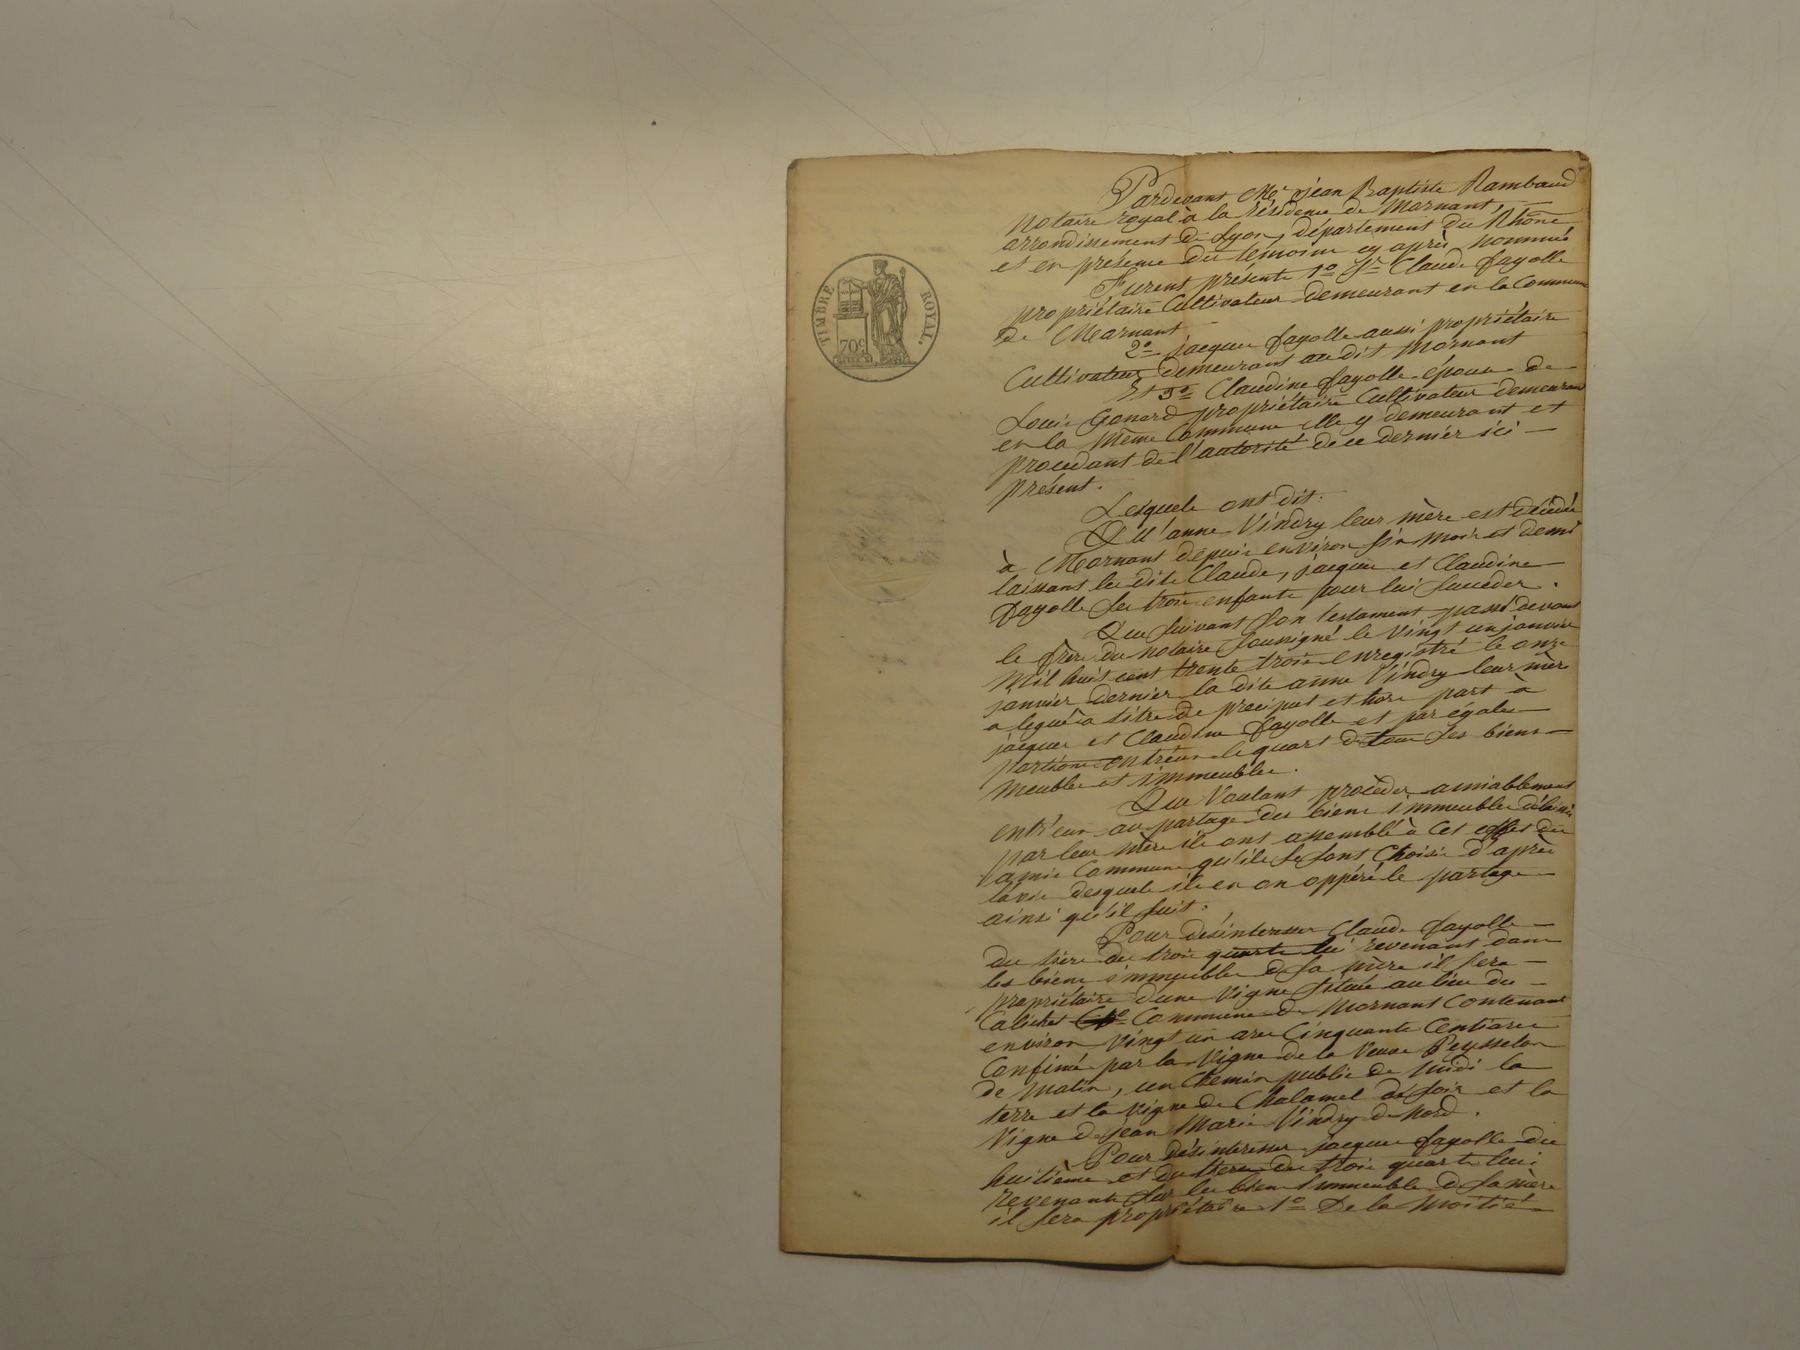 TIMBRE ROYAL.
70c
Pardevant Me jean Baptiste Rambaud
notaire royal à la résidence de Mornant,
arrondissement de Lyon, département du Rhône
et en présence des temoins cy après nommés
Furent présents 1º Sr Claude fayolle
propriétaire Cultivateur demeurant en la Commune
de Mornant
2º jacques fayolle aussi propriétaire
Cultivateur demeurant au dit Mornant
Et 3º Claudine fayolle épouse de
Louis Gonard propriétaire Cultivateur demeurant
en la même Commune elle y demeurant et
procédant de l'autorité de ce dernier ici
présent.
Lesquels ont dit.
Qu'anne Vindry leur mère est décédée
à Mornant depuis environ six mois et demi
laissant les dits Claude, jacques et Claudine
fayolle ses trois enfants pour lui succéder.
Que suivant son testament passé devant
le frère du notaire soussigné le vingt un janvier
mil huit cent trente trois enregistré le onze
janvier dernier la dite anne Vindry leur mère
a légué à titre de préciput et hors part à
jacques et Claudine fayolle et par égales
portions entr'eux le quart de tous ses biens
meubles et immeubles.
Que Voulant procéder amiablement
entr'eux au partage des biens immeubles délaissés
par leur mère ils ont assemblé à cet effet des
amis Communs qu'ils se sont Choisis d'après
lavis desquels ils en on oppéré le partage
ainsi qu'il suit:
Pour désintéresser Claude fayolle
du tiers des trois quarts lui revenant dans
les biens immeubles de sa mère il sera
propriétaire d'une vigne située au lieu du
Commune de Mornant Contenant
environ vingt un ares Cinquante Centiares
Confiné par la vigne de la Veuve Peysselon
de matin, un Chemin public de midi la
terre et la vigne de Chalamel de soir et la
vigne de jean Marie Vindry de nord.
Pour désintéresser jacques fayolle du
huitième et du tiers des trois quarts lui
revenants sur les biens immeubles de sa mère
il sera propriétaire 1º De la moitié